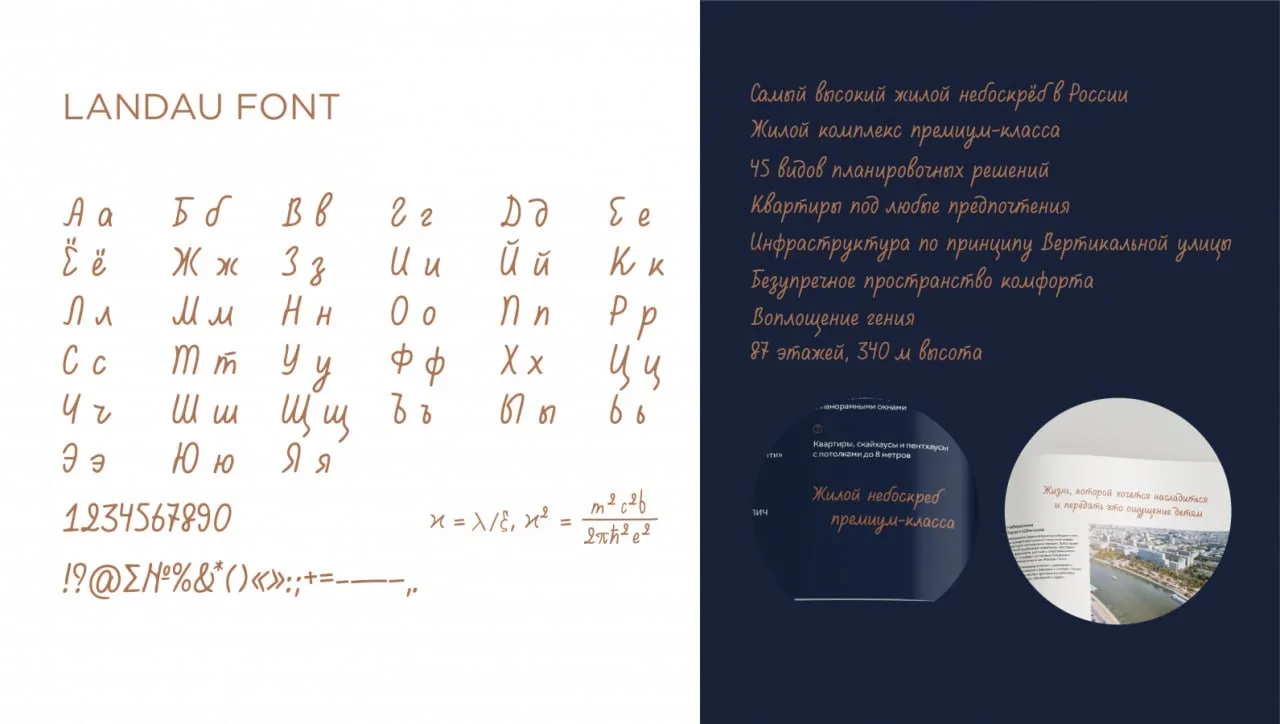 LANDAU FONT
А а Б б В в Г г Д д Е е
Ё ё Ж ж З з И и Й й К к
Л л М м Н н О о П п Р р
С с Т т У у Ф ф Х х Ц ц
Ч ч Ш ш Щ щ Ъ ъ Ы ы Ь ь
Э э Ю ю Я я
1234567890
ϰ = λ/ξ, ϰ² = m²c²b / 2πħ²e²
!?@Σ№%&*()«»:;+=-–—,.
Самый высокий жилой небоскрёб в России
Жилой комплекс премиум-класса
45 видов планировочных решений
Квартиры под любые предпочтения
Инфраструктура по принципу Вертикальной улицы
Безупречное пространство комфорта
Воплощение гения
87 этажей, 340 м высота
панорамными окнами
Квартиры, скайхаусы и пентхаусы
с потолками до 8 метров
Жилой небоскреб
премиум-класса
Жизнь, которой хочется насладиться
и передать это ощущение детям